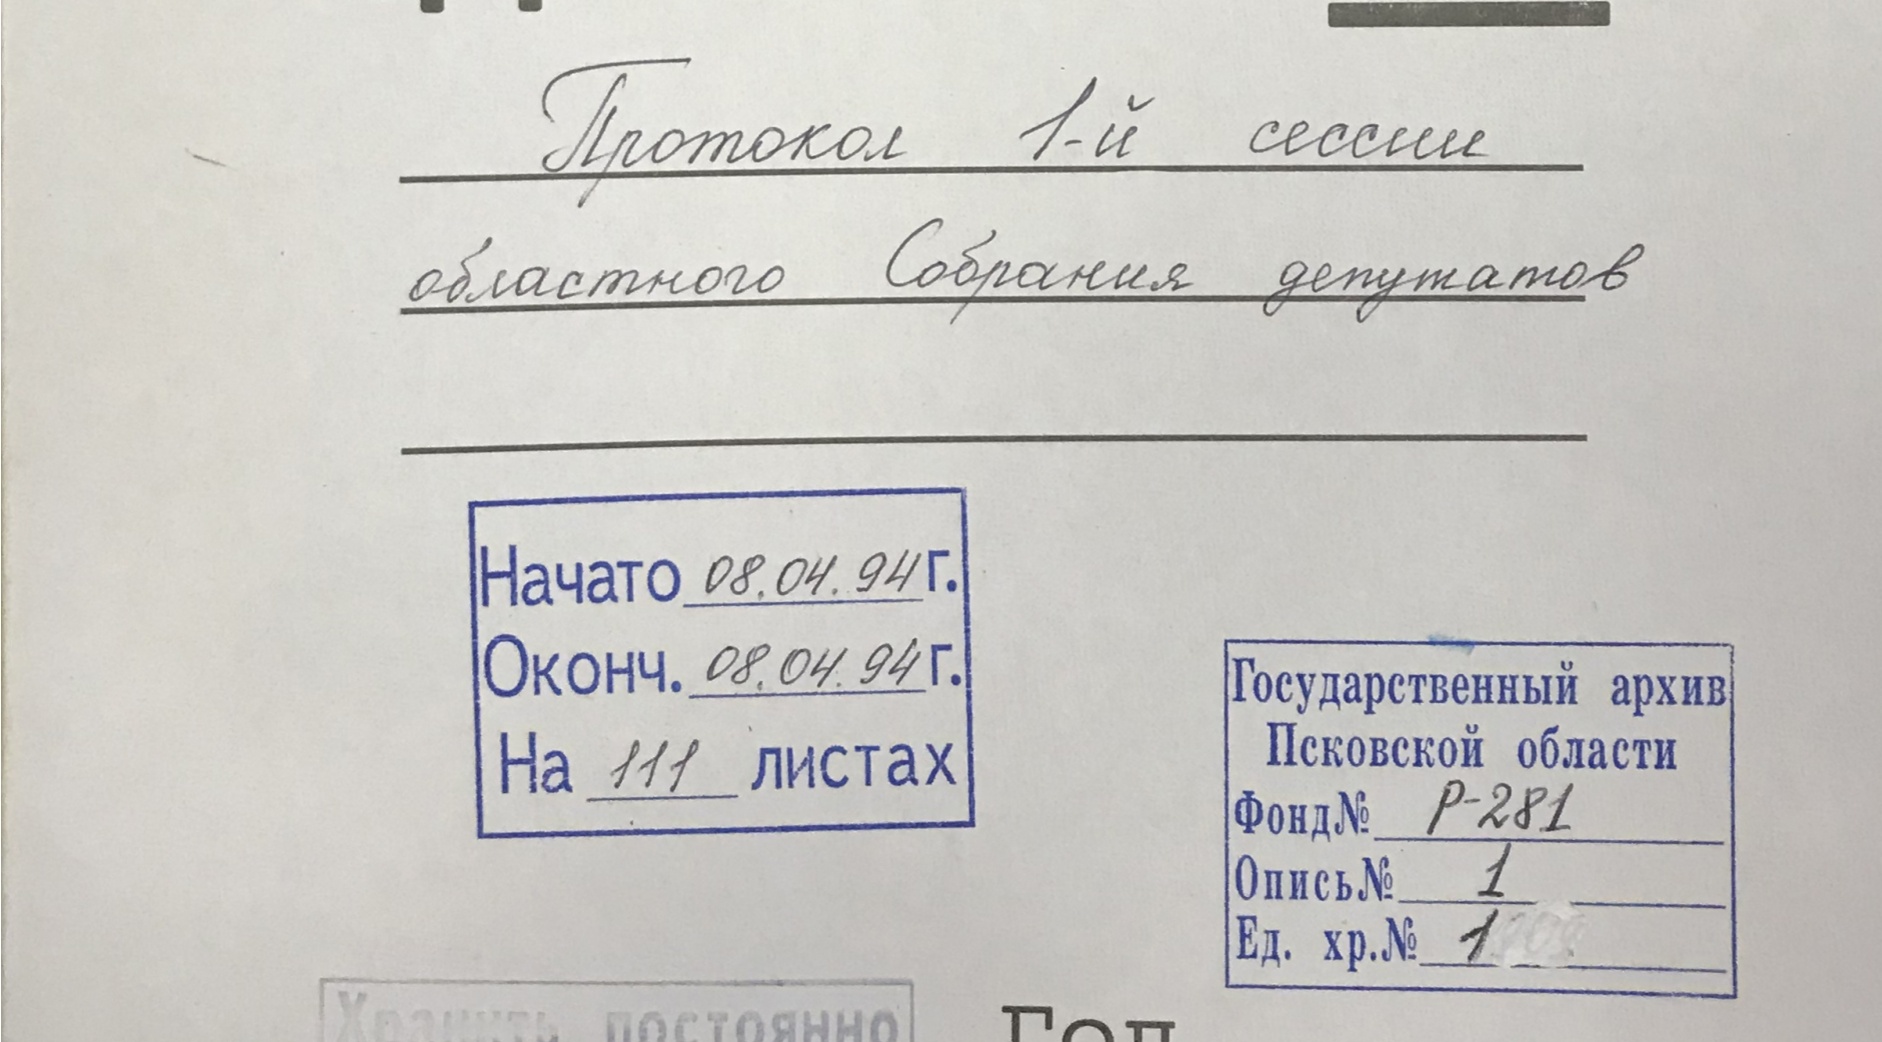 Протокол 1-й сессии
областного Собрания депутатов
Начато 08.04.94 г.
Оконч. 08.04.94 г.
На 111 листах
Государственный архив
Псковской области
Фонд № Р-281
Опись № 1
Ед. хр. № 1
Хранить постоянно
Год